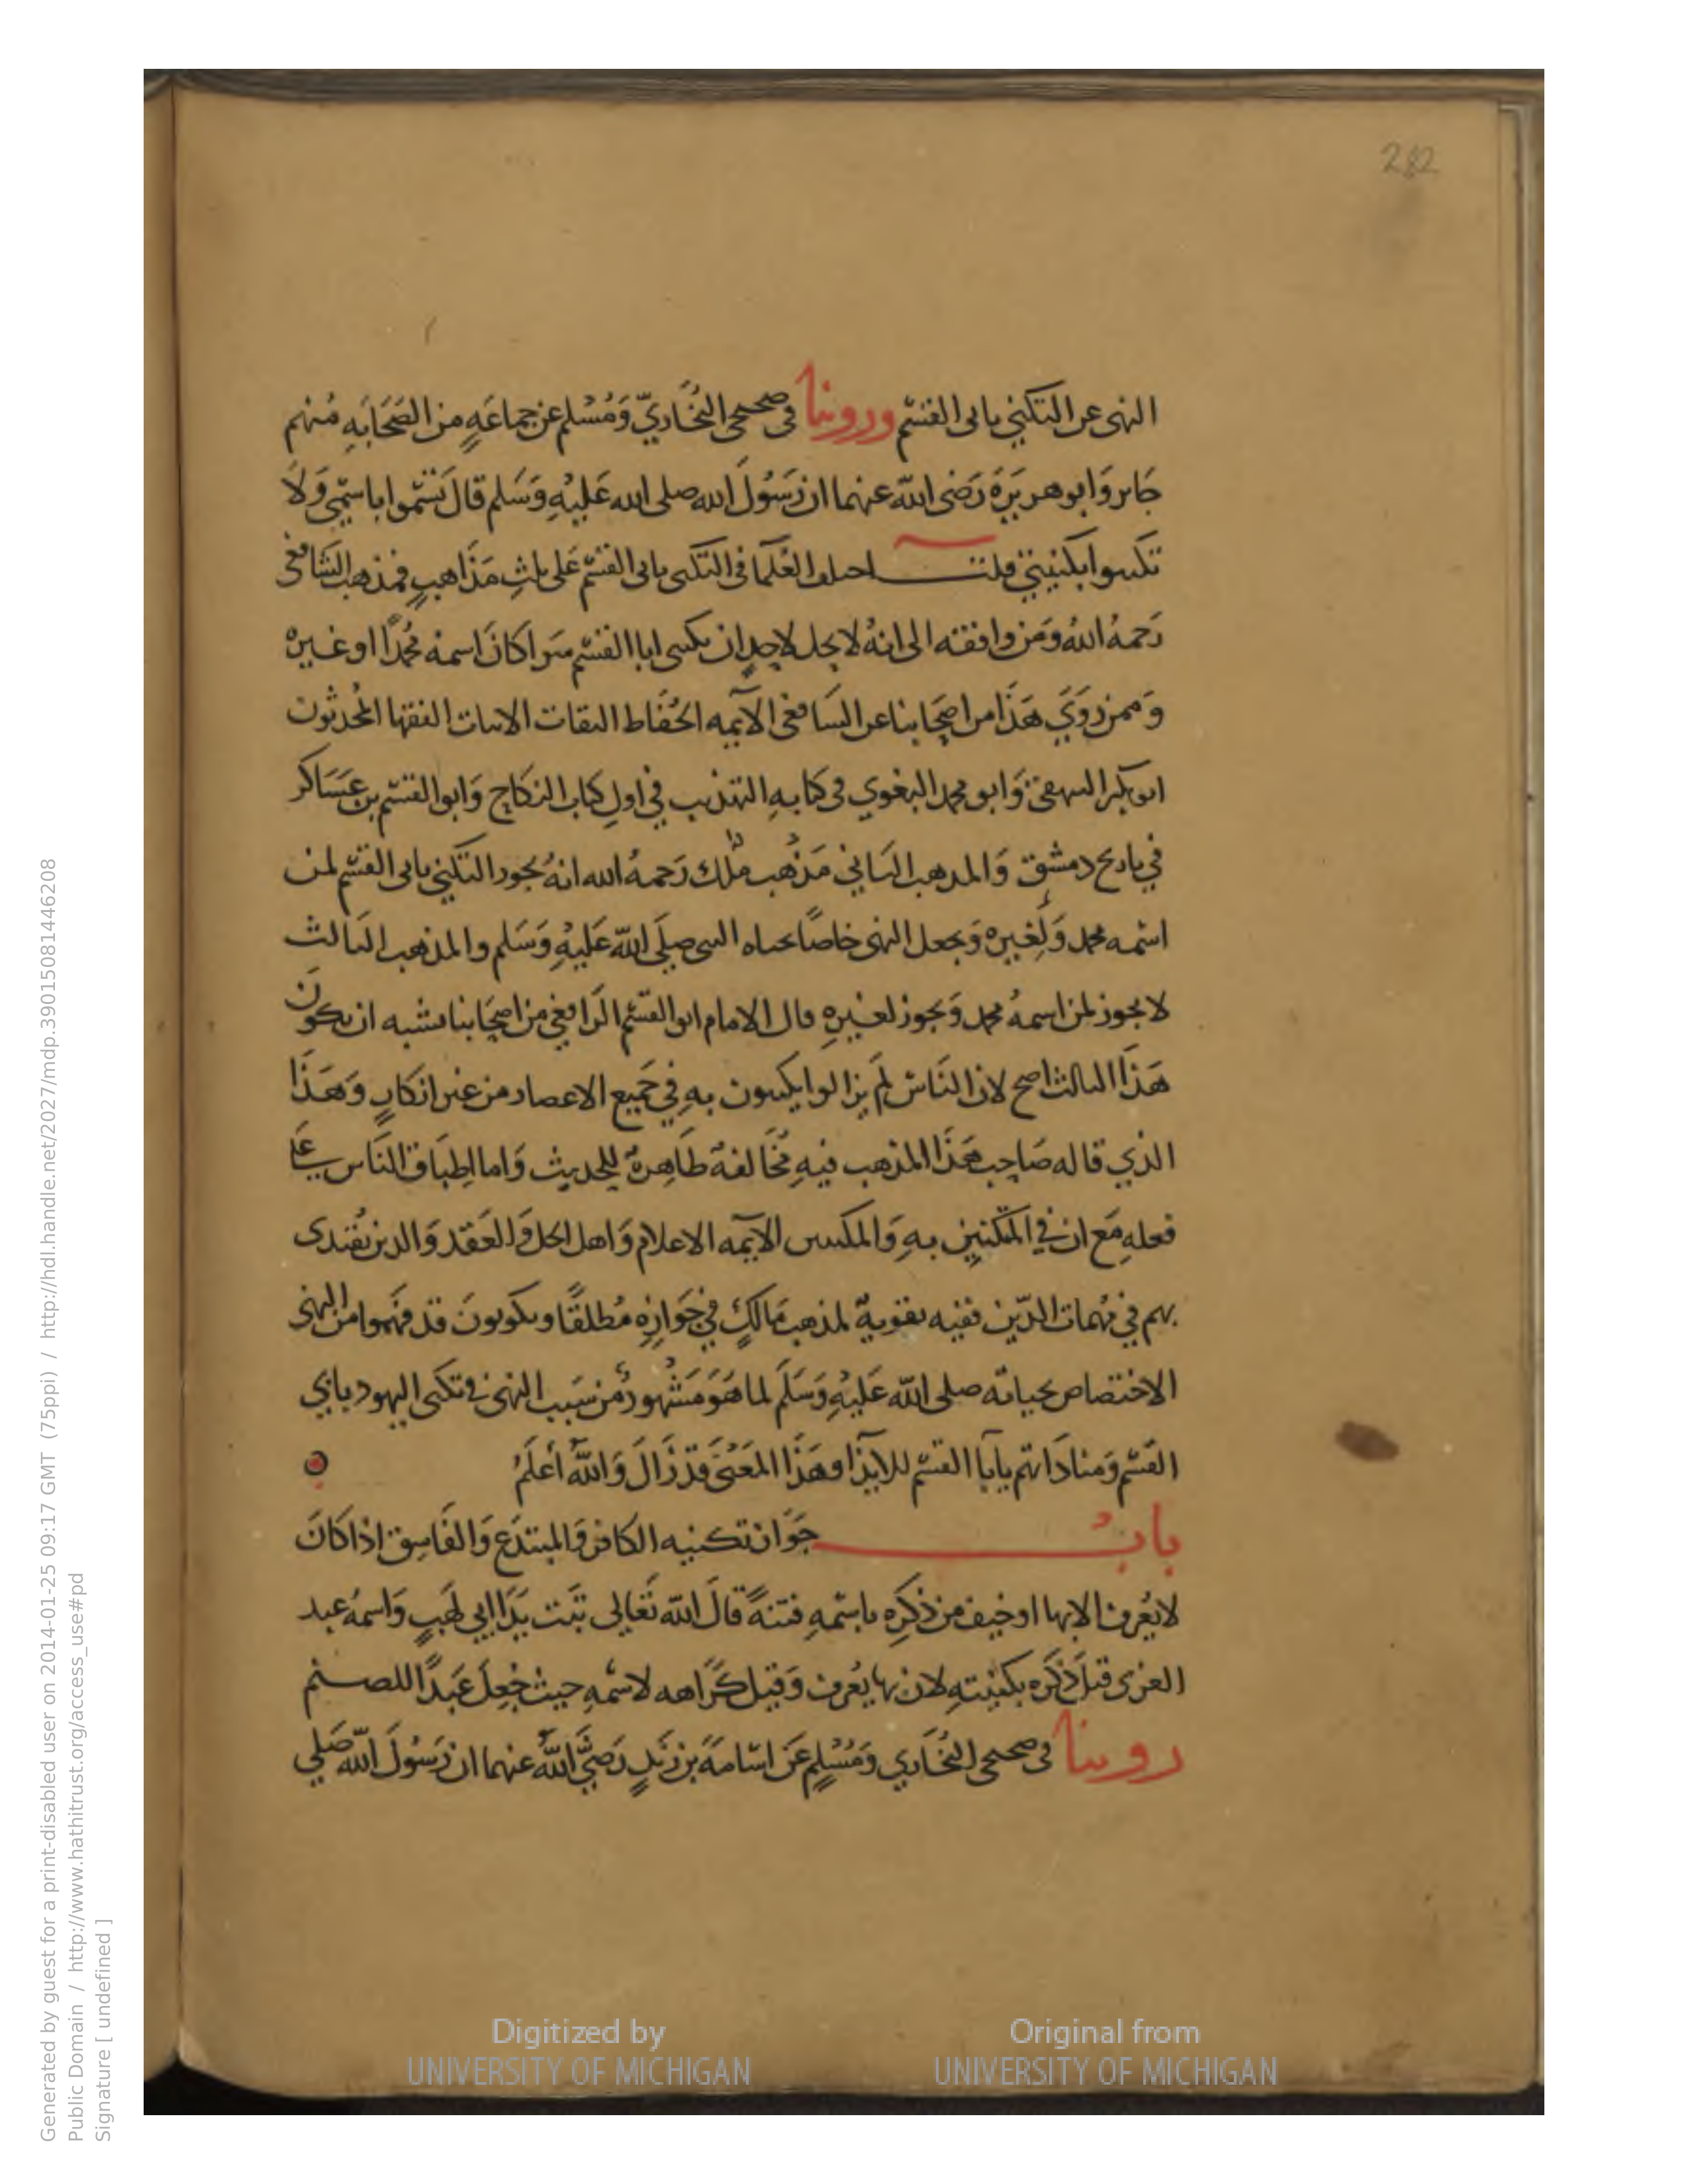 282
النهى عن التكني بابى القسم وروينا فى صحيحى البخاري ومسلم عن جماعة من الصحابة منهم
جابر وابو هريرة رضى الله عنهما ان رسول الله صلى الله عليه وسلم قال تسموا باسمي ولا
تكنوا بكنيتي قلت اختلف العلما فى التكنى بابى القسم على ثلث مذاهب فمذهب الشافعى
رحمه الله ومن وافقه الى انه لا يحل لاحد ان يكنى ابا القسم سوا كان اسمه محمدا او غيره
وممن روي هذا من اصحابنا عن الشافعى الايمه الحفاظ الثقات الاثبات الفقها المحدثون
ابو بكر البيهقى وابو محمد البغوي فى كتابه التهذيب في اول كتاب النكاح وابو القسم بن عساكر
في تاريخ دمشق والمذهب الثاني مذهب ملك رحمه الله انه يجوز التكني بابى القسم لمن
اسمه محمد ولغيره ويجعل النهى خاصا بحياه النبى صلى الله عليه وسلم والمذهب الثالث
لا يجوز لمن اسمه محمد ويجوز لغيره قال الامام ابو القسم الرافعي من اصحابنا يشبه ان يكون
هذا الثالث اصح لان الناس لم يزالوا يكتنون به في جميع الاعصار من غير انكار وهذا
الذي قاله صاحب هذا المذهب فيه مخالفة ظاهرة للحديث واما اطباق الناس على
فعله مع ان في المتكنين به والمكنين الايمه الاعلام واهل الحل والعقد والذين يقتدى
بهم في مهمات الدين ففيه تقوية لمذهب مالك في جوازه مطلقا ويكونون قد فهموا من النهى
الاختصاص بحياته صلى الله عليه وسلم لما هو مشهور من سبب النهى فى تكنى اليهود بابي
القسم ومناداتهم يابا القسم للايذا وهذا المعنى قد زال والله أعلم
باب جواز تكنيه الكافر والمبتدع والفاسق اذا كان
لا يعرف الا بها او خيف من ذكره باسمه فتنة قال الله تعالى تبت يدا ابي لهب واسمه عبد
العزى قيل ذكره بكنيته لانه بها يعرف وقيل كراهه لاسمه حيث جعل عبدا للصنم
روينا فى صحيحى البخاري ومسلم عن اسامة بن زيد رضي الله عنهما ان رسول الله صلي
Digitized by UNIVERSITY OF MICHIGAN
Original from UNIVERSITY OF MICHIGAN
Generated by guest for a print-disabled user on 2014-01-25 09:17 GMT (75ppi) / http://hdl.handle.net/2027/mdp.39015081446208
Public Domain / http://www.hathitrust.org/access_use#pd
Signature [ undefined ]